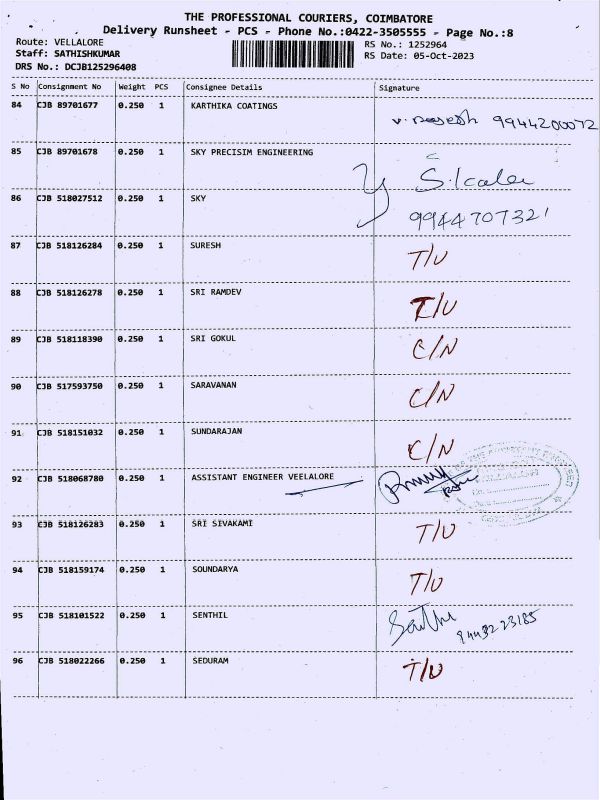 THE PROFESSIONAL COURIERS, COIMBATORE
Delivery Runsheet - PCS - Phone No.:0422-3505555 - Page No.:8
Route: VELLALORE
Staff: SATHISHKUMAR
DRS No.: DCJB125296408
RS No.: 1252964
RS Date: 05-Oct-2023
S No Consignment No Weight PCS Consignee Details Signature
84 CJB 89701677 0.250 1 KARTHIKA COATINGS 9944200072
85 CJB 89701678 0.250 1 SKY PRECISIM ENGINEERING
86 CJB 518027512 0.250 1 SKY 9944707321
87 CJB 518126284 0.250 1 SURESH T/U
88 CJB 518126278 0.250 1 SRI RAMDEV T/U
89 CJB 518118390 0.250 1 SRI GOKUL C/N
90 CJB 517593750 0.250 1 SARAVANAN C/N
91 CJB 518151032 0.250 1 SUNDARAJAN C/N
92 CJB 518068780 0.250 1 ASSISTANT ENGINEER VEELALORE
93 CJB 518126283 0.250 1 SRI SIVAKAMI T/U
94 CJB 518159174 0.250 1 SOUNDARYA T/U
95 CJB 518101522 0.250 1 SENTHIL
96 CJB 518022266 0.250 1 SEDURAM T/U